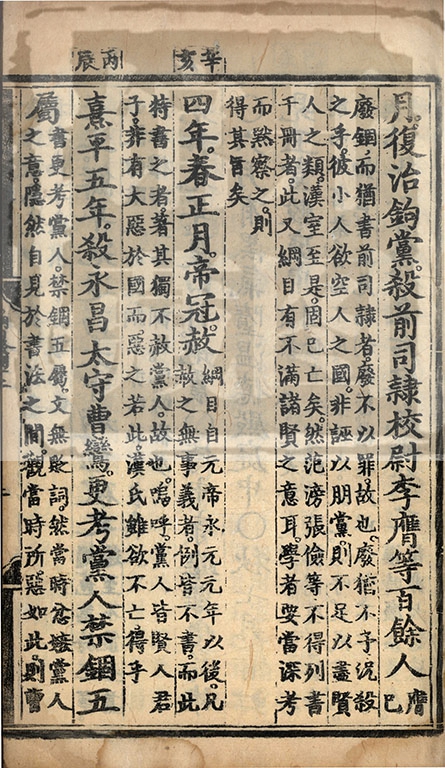 辛亥
丙辰
月。復治鉤黨。殺前司隸校尉李膺等百餘人
膺
已
廢錮。而猶書前司隸者。廢不以罪。故也。廢猶不予。况殺
之乎。彼小人欲空人之國。非誣以朋黨。則不足以盡賢
人之類。漢室至是。固已亡矣。然范滂張儉等不得列書
于冊者。此又綱目有不滿諸賢之意耳。學者要當深考
而默察之。則
得其旨矣
四年。春正月。帝冠。赦
綱目自元帝永元元年以後。凡
赦之無事義者。例皆不書。而此
特書之者。著其獨不赦黨人。故也。嗚呼。黨人皆賢人君
子。非有大惡於國。而惡之若此。漢氏雖欲不亡得乎
熹平五年。殺永昌太守曹鸞。更考黨人禁錮五
屬
書更考黨人。禁錮五屬。文無貶詞。然當時忿嫉黨人
之意隱然自見於書法之間。觀當時所惡如此。則曹